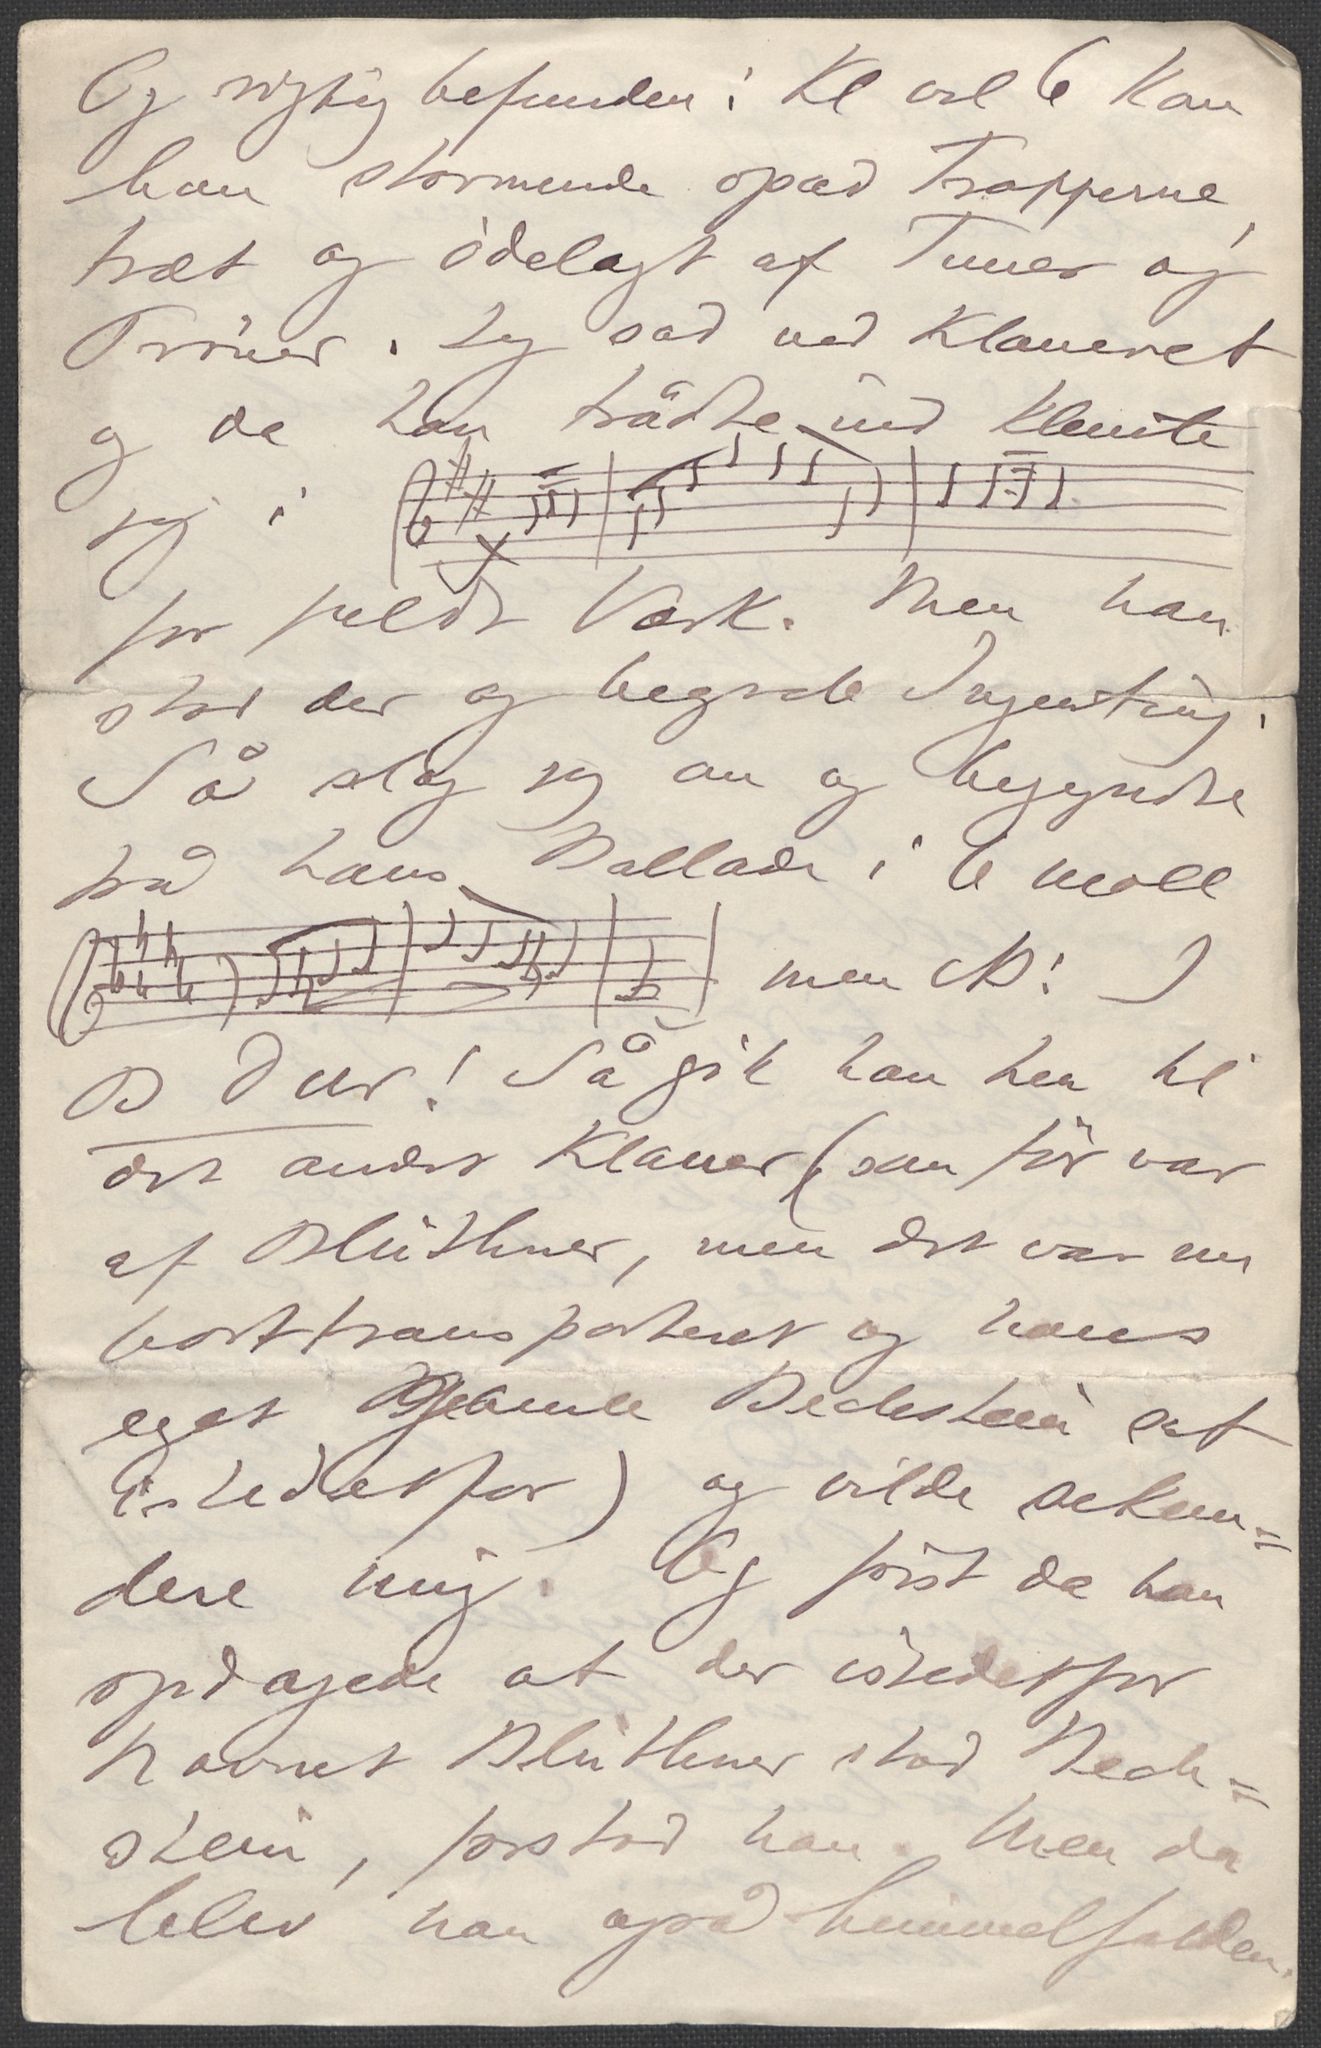 Og rigtig befunden: Kl vel 6 kom
han stormende opad Trapperne,
træt og ödelagt af Timer og
Pröver. Jeg sad ved Klaveret
og da han trådte ind klemte
jeg i
for fuldt Værk. Men han
stod der og begreb Ingenting.
Så slog jeg om og begyndte
på hans Ballade i b moll
men NB: I
B Dur! Så gik han hen til
det andet Klaver (som för var
af Blüthner, men det var nu
borttransporteret og hans
eget gamle Bechstein sat
istedetfor) og vilde sekun=
dere mig. Og först da han
opdagede at der istedetfor
Navnet Blüthner stod Bech=
stein, forstod han. Men da
blev han også himmelfalden.